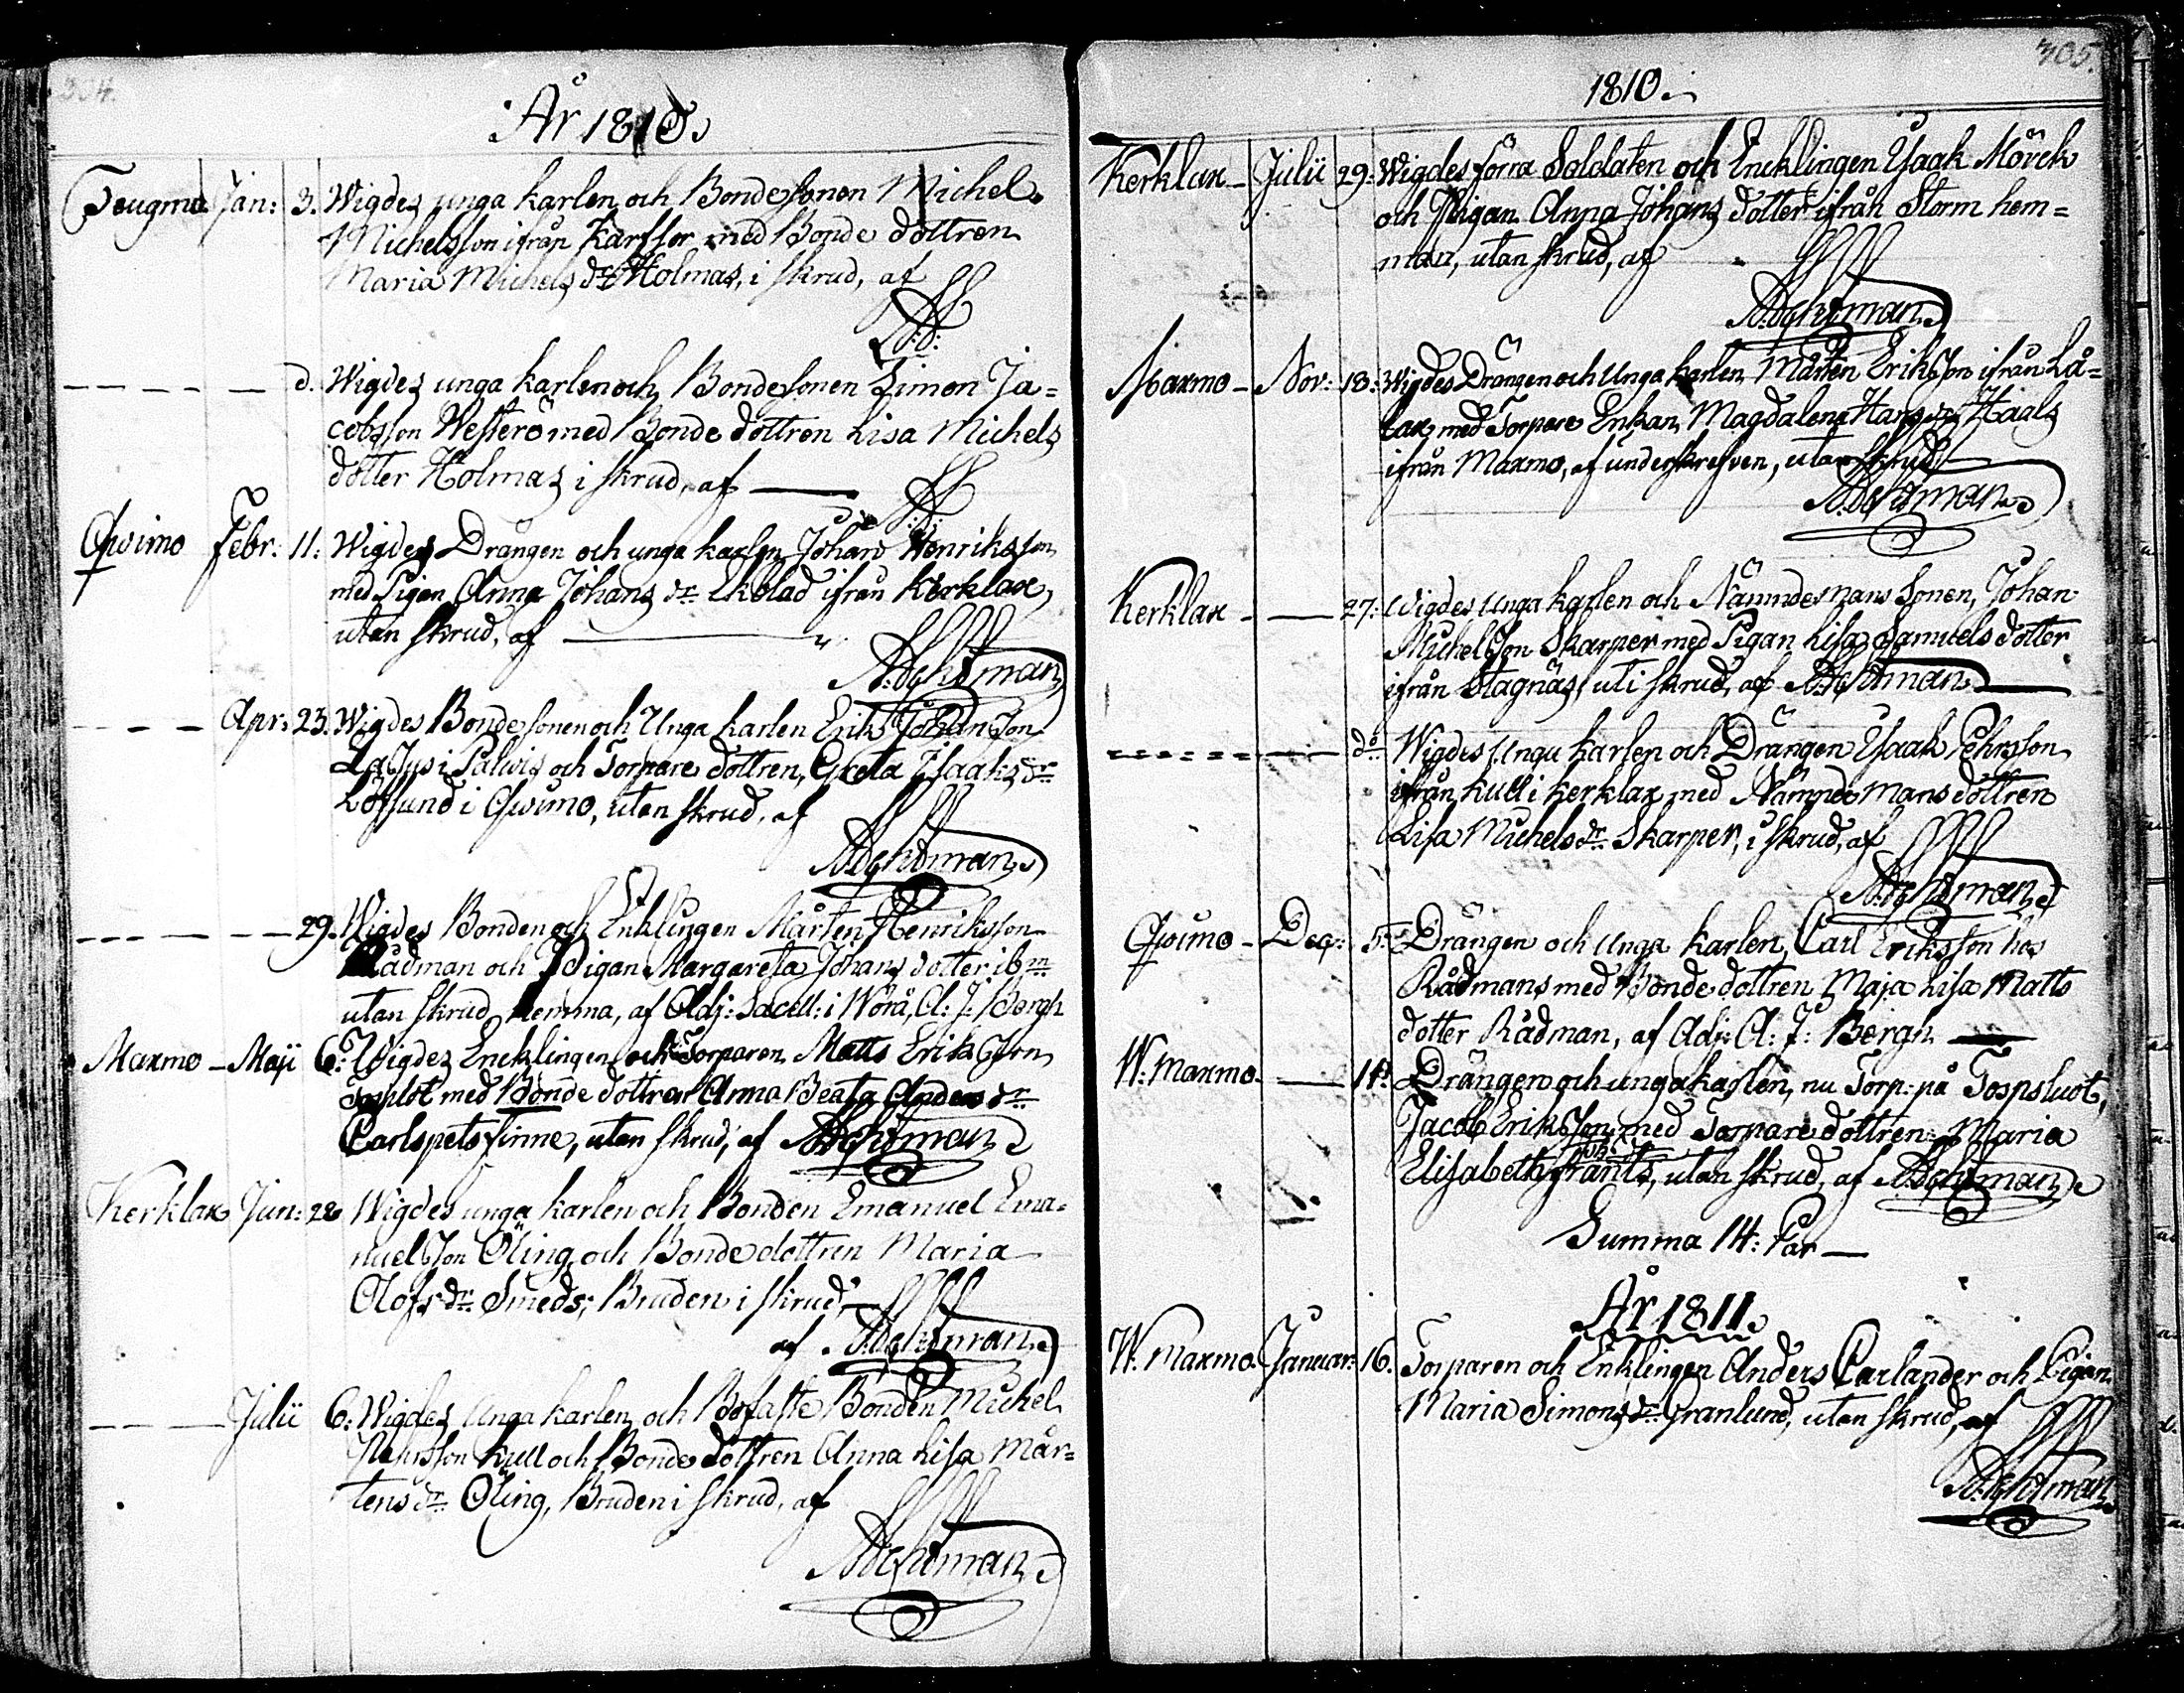 304.
År 1810.
Teugmo Jan: 3. Wigdes unga karlen och Bondesonen Michel
Michelsson ifrån Karfsor med Bonde dottren
Maria Michels dr Holmas, i skrud, af
A:A:
d. Wigdes unga karlen och Bondesonen Simon Ja=
cobsson Westerö med Bonde dottren Lisa Michels
dotter Holmas i skrud, af
A:A:
Qwimo Febr: 11: Wigdes Drängen och unga karlen Johan Henriksson
med Pigan Anna Johans dr Ekblad ifrån Kerklax,
utan skrud, af
A. Achtman
Apr: 23. Wigdes Bondesonen och Unga karlen Erik Johansson
i Palvis och Torpare dottren, Greta Isaaks dr
Löfsund i Qwimo, utan skrud, af
A Achtman
29. Wigdes Bonden och Enklingen Mårten Henriksson
Rådman och Pigan Margareta Johans dotter ibm
utan skrud hemma, af Adj: Sacell: i Wörå, A: J: Bergh
Maxmo Maji 6: Wigdes Encklingen och Torparen Matts Eriksson
med Bonde dottren Anna Beata Anders dr
Carlspets finne, utan skrud, af A Achtman
Kerklax Jun: 28 Wigdes unga karlen och Bonden Emanuel Ema=
nuelsson Öling och Bonde dottren Maria
Olofs dr Smeds; Bruden i skrud,
af A. Achtman
Julii 6: Wigdes Unga karlen och Bofaste Bonden Michel
Pehrsson Kull och Bonde dottren Anna Lisa Mår=
tens dr Öling, Bruden i skrud, af
A Achtman
305.
1810.
Kerklax Julii 29: Wigdes förra Soldaten och Encklingen Isaak Mörck
och Pigan Anna Johans dotter ifrån Storm hem=
man, utan skrud, af
A. Achtman
Maxmo Nov: 18: Wigdes Drängen och Unga karlen Mårten Eriksson ifrån Lå=
lax med Torpare Enkan, Magdalena Hans dr Haals
ifrån Maxmo, af underskrefven, utan skrud
A. Achtman
Kerklax 27: Wigdes, unga karlen och Nämndemans Sonen, Johan
Michelsson Skarper med Pigan Lisa Samuels dotter
ifrån Stagnäs, uti skrud, af A. Achtman
do Wigdes Unga karlen och Drängen Isaak Pehrsson
ifrån Kull i kerklax med Nämnde mans dottren
Lisa Michels dr Skarper, i skrud, af
A. Achtman
Qwimo Dec: 5: Drängen och unga karlen, Carl Eriksson hos
Rådmans med Bonde dottren Maja Lisa Matts
dotter Rådman, af Adj: A: J: Bergh
W. Maxmo 11: Drängen och unga karlen, nu Torp: på
Jacob Eriksson med Torpare dottren Maria
Elisabeth Frants, utan skrud, af A. Achtman
Summa 14: Par
År 1811.
W. Maxmo Januar: 16. Torparen och Enklingen Anders Carlander och Pigan
Maria Simons dr Granlund, utan skrud, af
A. Achtman